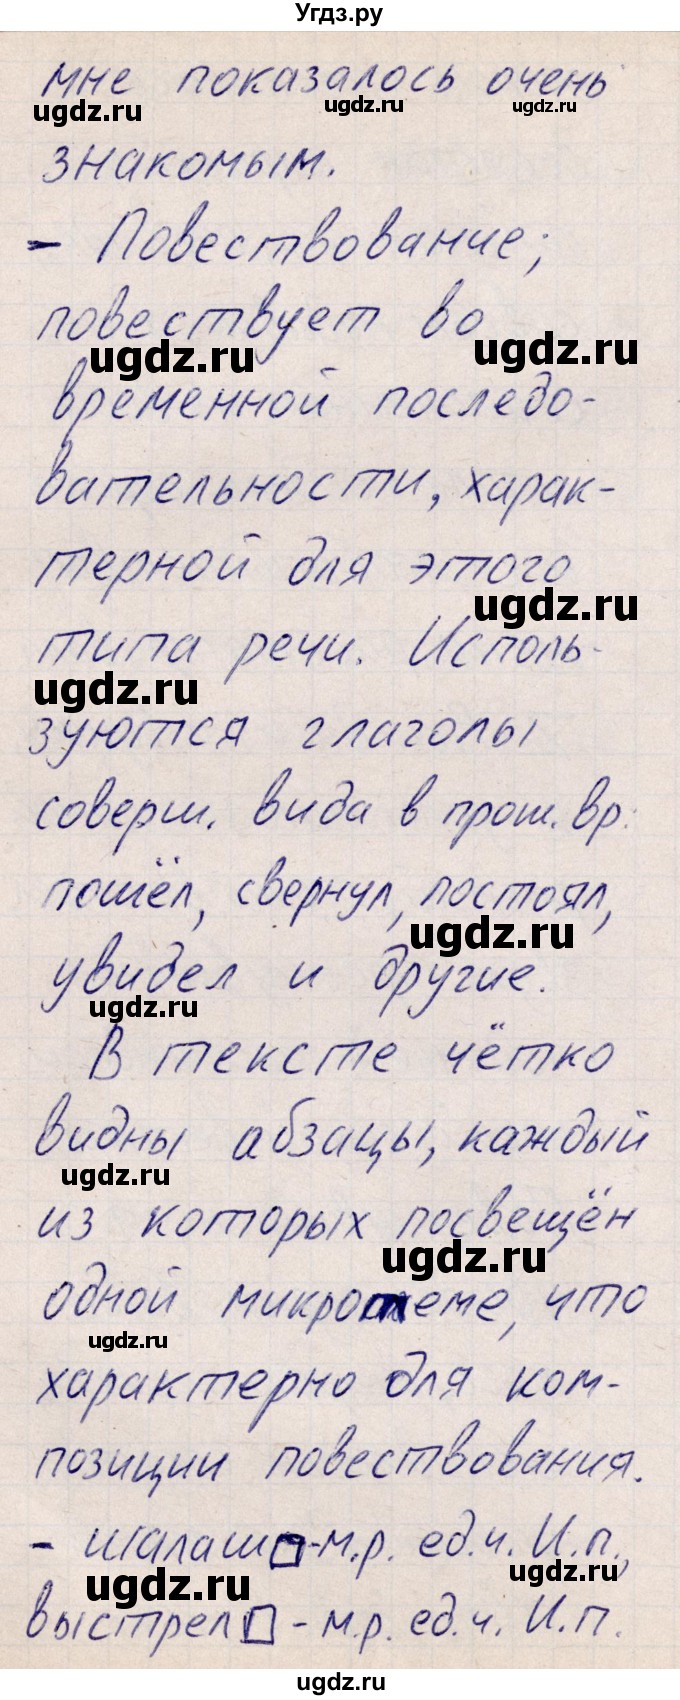 Угдз.ру
мне показалось очень
ugdz.ru ugdz.ru ugdz.ru
знакомым.
- Повествование;
повествует во
ugdz.ru ugdz.ru
временной последо-
вательности, харак-
терной для этого
ugdz.ru
типа речи. Исполь-
ugdz.ru
зуются глаголы
соверш. вида в прош. вр.:
пошёл, свернул, постоял,
ugdz.ru
увидел и другие.
ugdz.ru
В тексте чётко
видны абзацы, каждый
ugdz.ru
из которых посвещён
ugdz.ru
одной микротеме, что
ugdz.ru
характерно для ком-
позиции повествования.
- шалаш□-м.р. ед.ч. И.п.,
ugdz.ru ugdz.ru
выстрел□ - м.р. ед.ч. И.п.
ugdz.ru